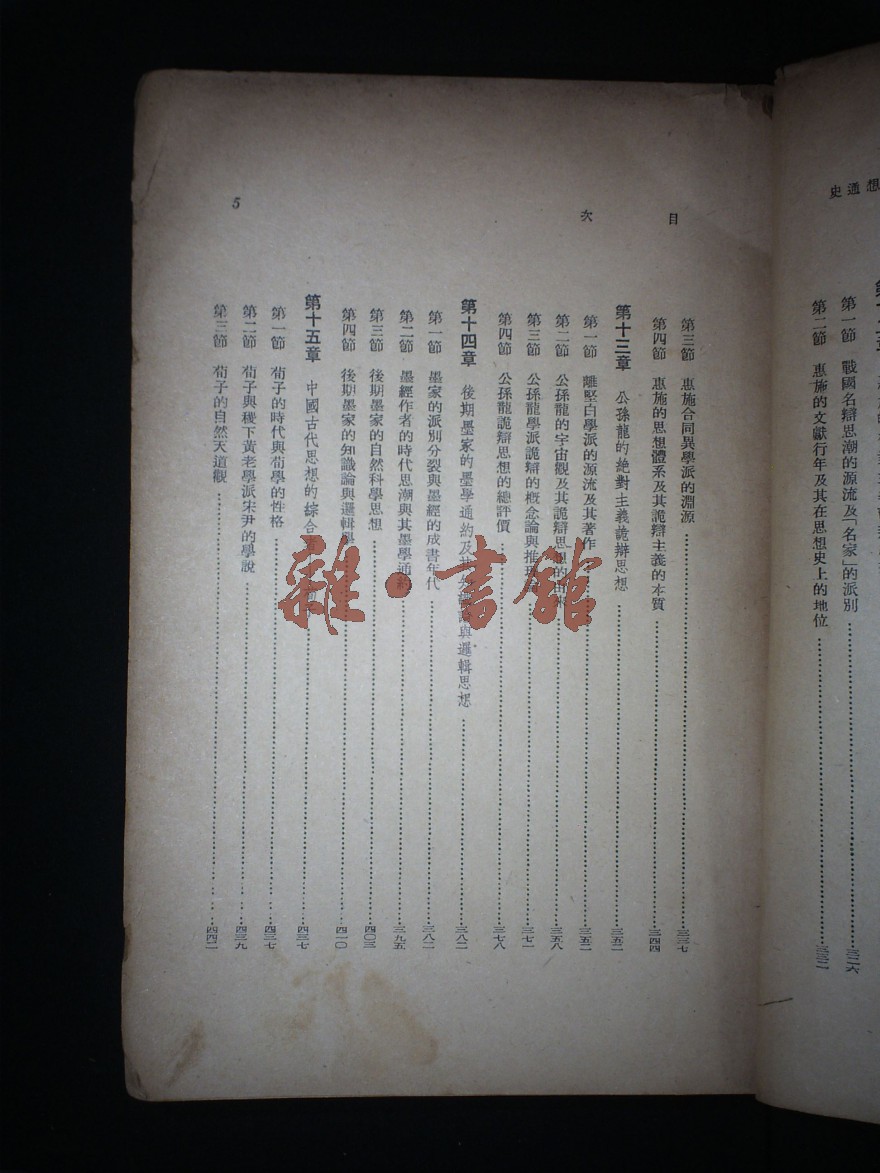 想通史
第一節 戰國名辯思潮的源流及「名家」的派別……三二六
第二節 惠施的文獻行年及其在思想史上的地位……三三二
目 次
5
第三節 惠施合同異學派的淵源……三三七
第四節 惠施的思想體系及其詭辯主義的本質……三四四
第十三章 公孫龍的絶對主義詭辯思想……三五二
第一節 離堅白學派的源流及其著作……三五二
第二節 公孫龍的宇宙觀及其詭辯思想的由來……三五八
第三節 公孫龍學派詭辯的概念論與推理……三七一
第四節 公孫龍詭辯思想的總評價……三七八
第十四章 後期墨家的墨學通約及其……與邏輯思想……三八二
第一節 墨家的派別分裂與墨經的成書年代……三八二
第二節 墨經作者的時代思潮與其墨學通約……三九五
第三節 後期墨家的自然科學思想……四〇三
第四節 後期墨家的知識論與邏輯學……四一〇
第十五章 中國古代思想的綜合者……四三七
第一節 荀子的時代與荀學的性格……四三七
第二節 荀子與稷下黃老學派宋尹的學說……四三九
第三節 荀子的自然天道觀……四四二
雜·書館